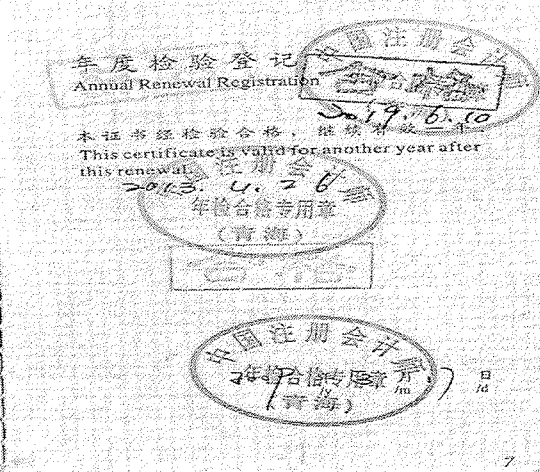 年度检验登记
Annual Renewal Registration
中国注册会计师
2019.6.10
本证书经检验合格，继续有效一年
This certificate is valid for another year after
this renewal.
注册会计师
2013. 4. 26
年检合格专用章
（青海）
合格
中国注册会计师
年检合格专用章
（青海）
月
/m
日
/d
/y
7